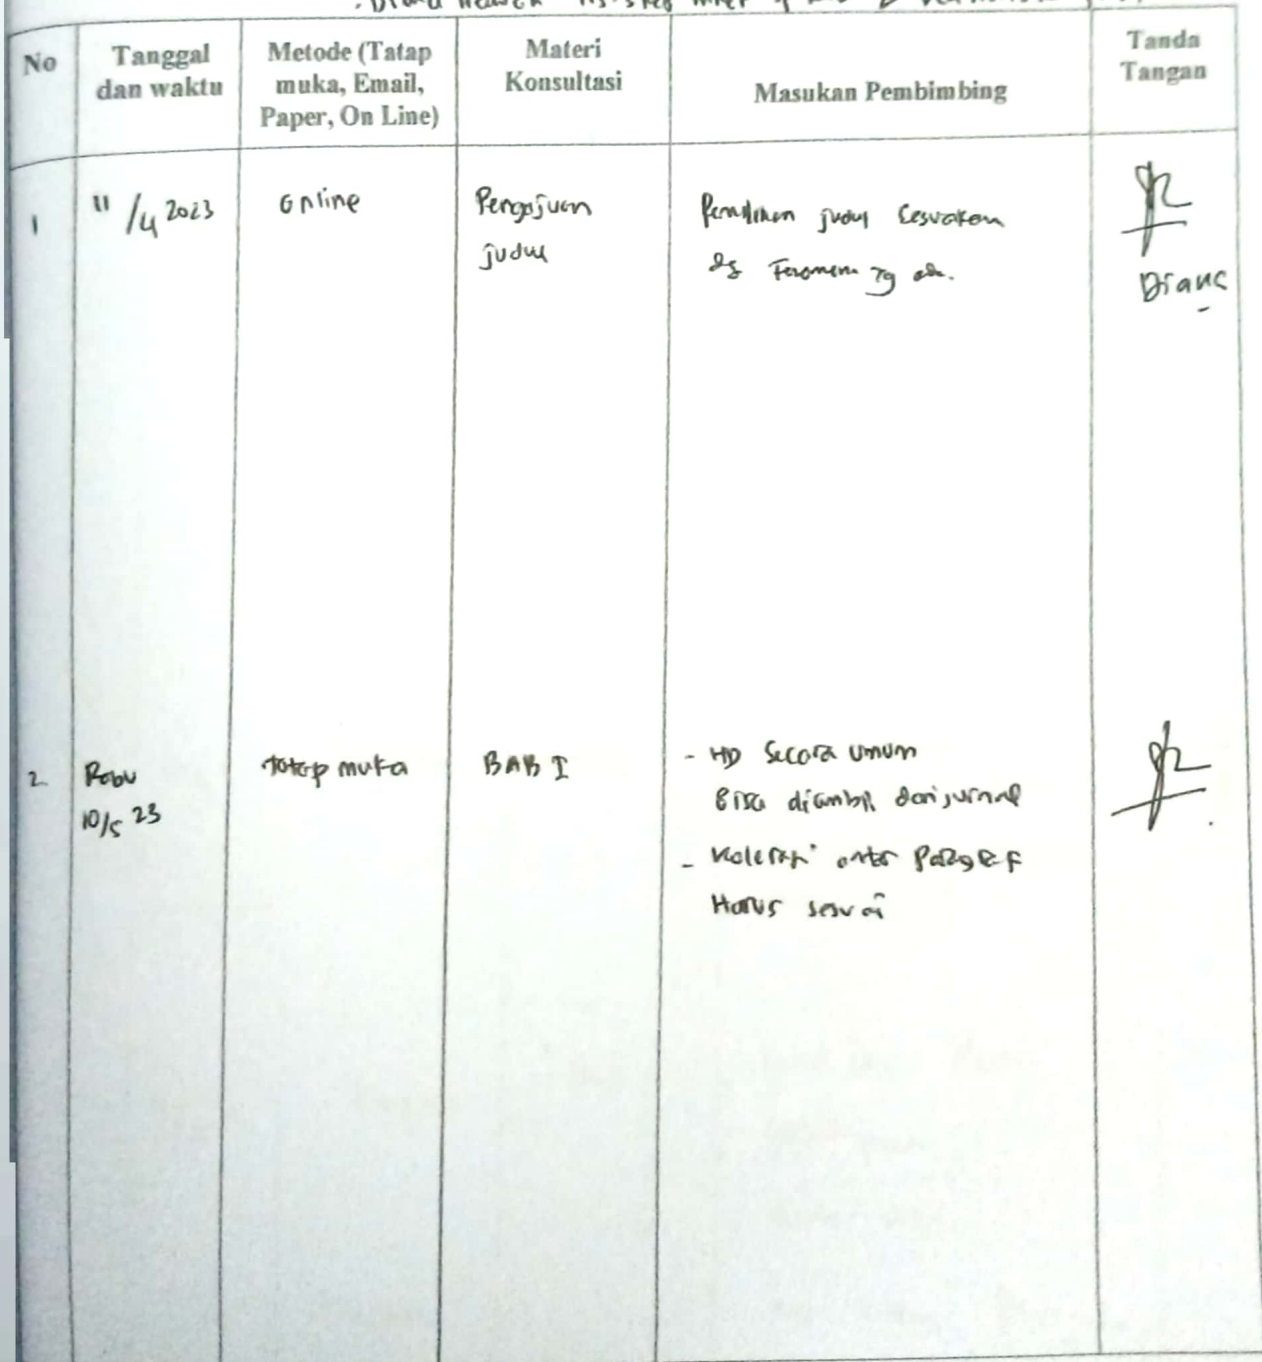 No
Tanggal dan waktu
Metode (Tatap muka, Email, Paper, On Line)
Materi Konsultasi
Masukan Pembimbing
Tanda Tangan
1
11/4 2023
Online
Pengajuan
judul
judul sesuaikan
dg Fenomena yg ada.
Diana
2.
Rabu
10/5 23
Tatap muka
BAB I
- HD Secara umum
Bisa diambil dari jurnal
- antar
Harus sesuai